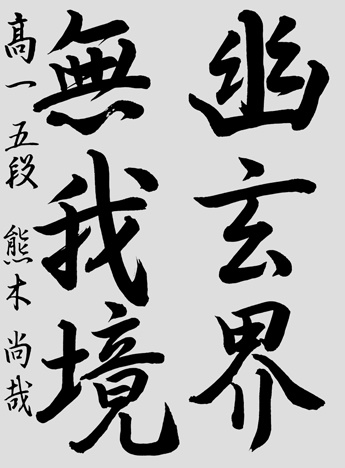 幽玄界
無我境
高一 五段 熊木尚哉